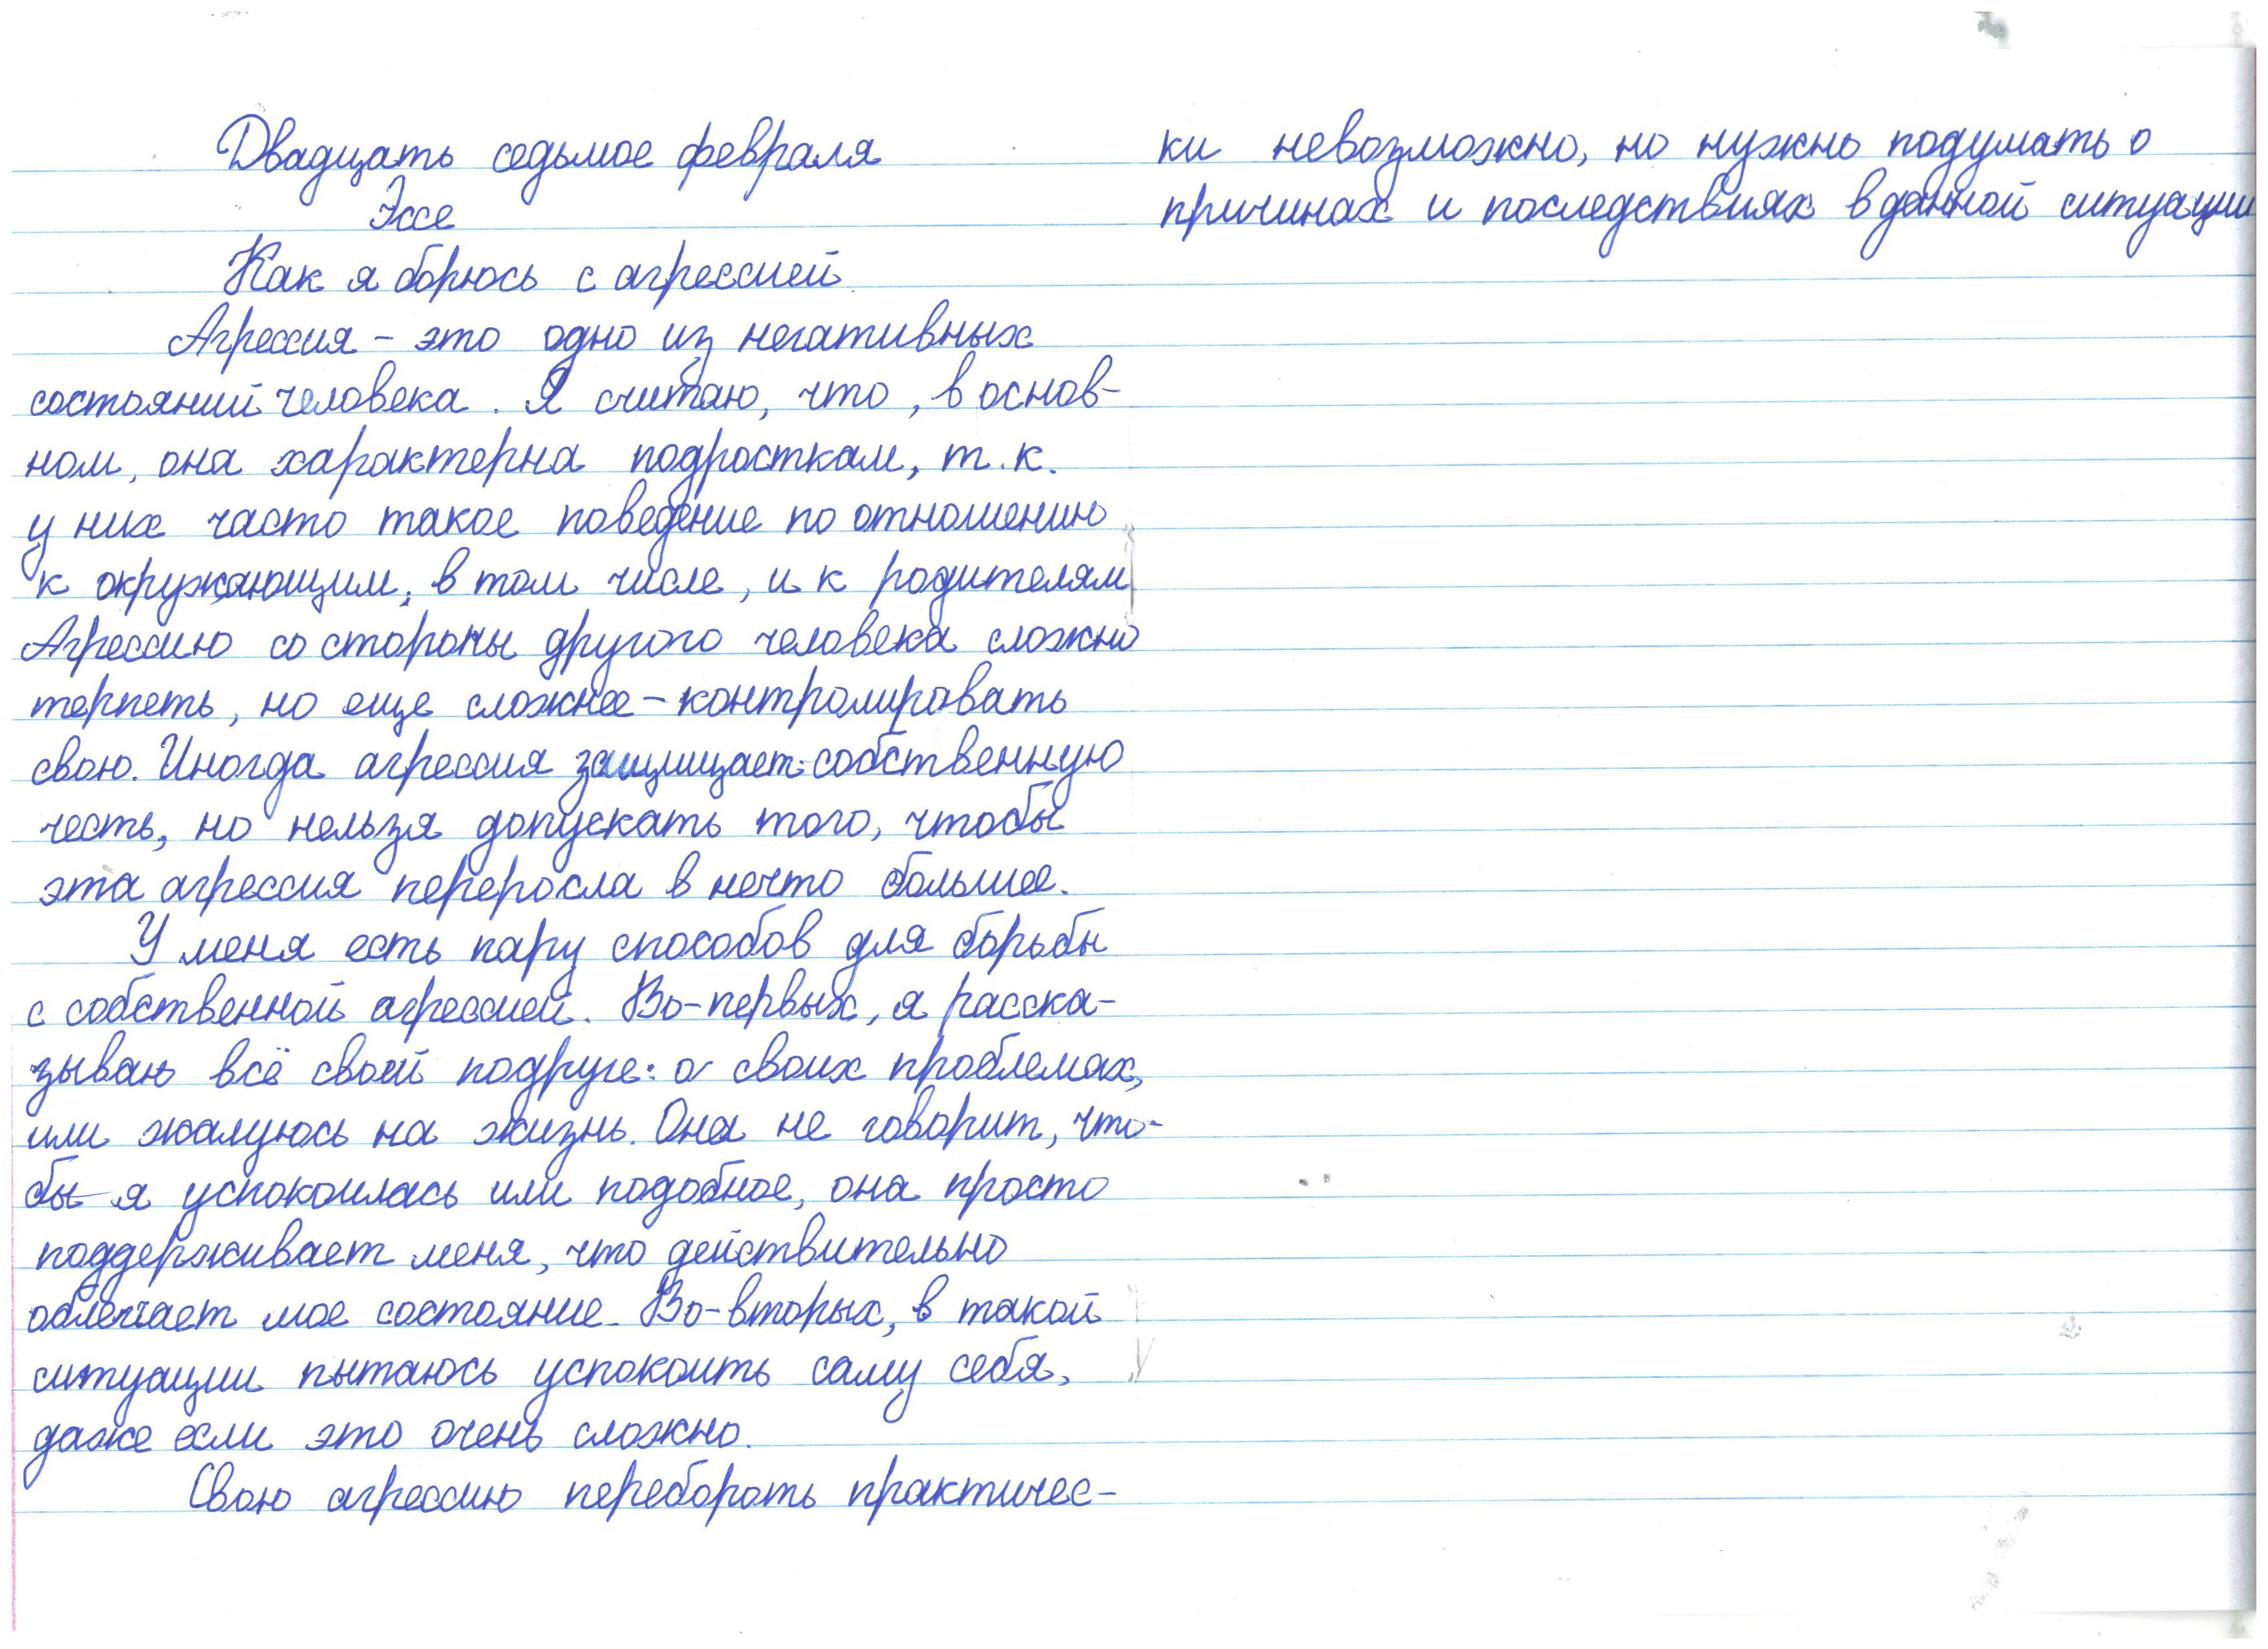 Двадцать седьмое февраля
Эссе
Как я борюсь с агрессией
Агрессия – это одно из негативных
состояний человека. Я считаю, что, в основ-
ном, она характерна подросткам, т.к.
у них часто такое поведение по отношению
к окружающим, в том числе, и к родителям
Агрессию со стороны другого человека сложно
терпеть, но еще сложнее – контролировать
свою. Иногда агрессия защищает собственную
честь, но нельзя допускать того, чтобы
эта агрессия переросла в нечто большее.
У меня есть пару способов для борьбы
с собственной агрессией. Во-первых, я расска-
зываю всё своей подруге: о своих проблемах,
или жалуюсь на жизнь. Она не говорит, что-
бы я успокоилась или подобное, она просто
поддерживает меня, что действительно
облегчает мое состояние. Во-вторых, в такой
ситуации пытаюсь успокоить саму себя,
даже если это очень сложно.
Свою агрессию перебороть практичес-
ки невозможно, но нужно подумать о
причинах и последствиях в данной ситуации